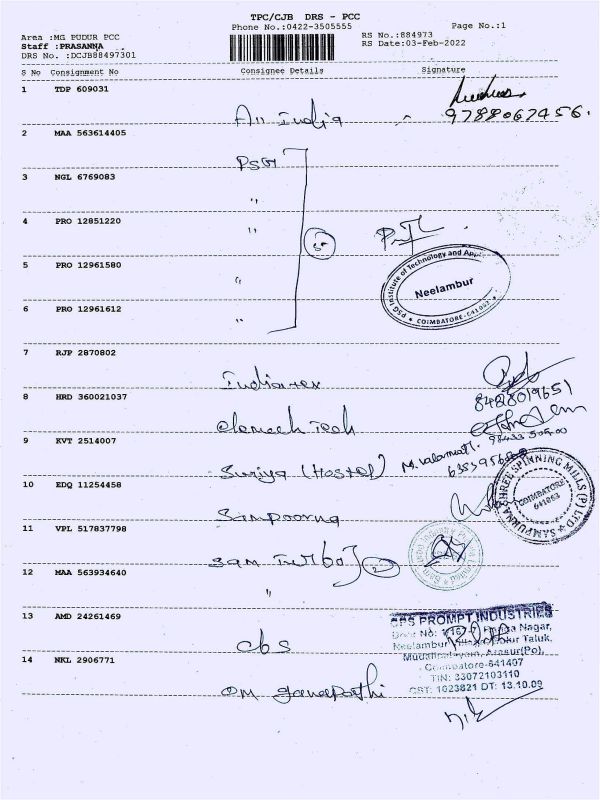 TPC/CJB DRS - PCC
Phone No.:0422-3505555
Page No.:1
Area :MG PUDUR PCC
Staff :PRASANNA
DRS No. :DCJB88497301
RS No.:884973
RS Date:03-Feb-2022
S No Consignment No Consignee Details Signature
1 TDP 609031
All India
9788067456.
2 MAA 563614405
PSG
3 NGL 6769083
"
4 PRO 12851220
"
5 PRO 12961580
"
6 PRO 12961612
"
5
PSG Institute of Technology and
Neelambur
COIMBATORE-641062
7 RJP 2870802
Indianex
8 HRD 360021037
8428019651
Tech
9 KVT 2514007
Suriya (Hostel)
10 EDQ 11254458
Sampoorna
SAMPURNA SHREE SPINNING MILLS (P) LTD
COIMBATORE
11 VPL 517837798
Sam Turbo
2
12 MAA 563934640
"
13 AMD 24261469
CPS PROMPT INDUSTRIES
Nagar,
Neelambur Taluk,
Arasur(Po),
Coimbatore-641407
TIN: 33072103110
CST: 1023821 DT: 13.10.09
cbs
14 NKL 2906771
OM ganapathi